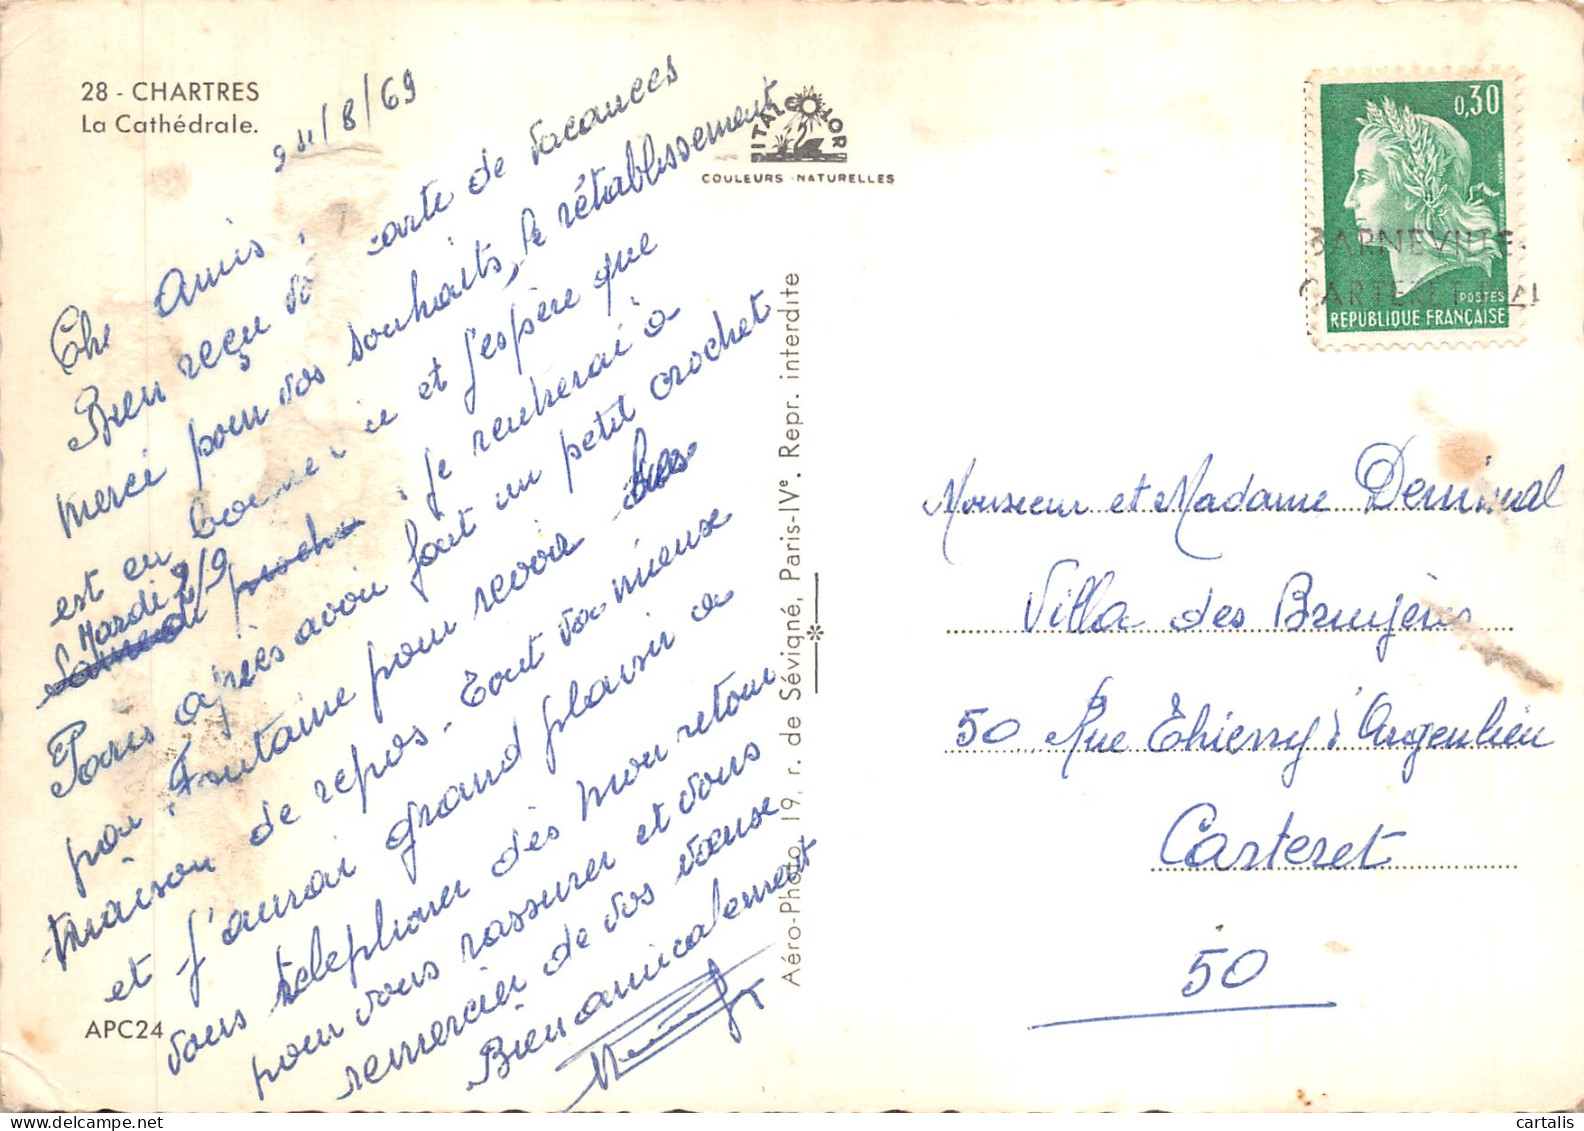 28 - CHARTRES
La Cathédrale.
/8/69
Amis,
Bien reçu carte de vacances
merci pour vos souhaits, le rétablissement
est en bonne et j'espère que
Mardi 2/9
Samedi prochain je rentrerai à
Paris après avoir fait un petit crochet
par Fontaine pour revoir
maison de repos - Tout va mieux
et j'aurai grand plaisir à
vous telephoner dès mon retour
pour vous rassurer et vous
remercier de vos vœux
Bien amicalement
APC24
ITALCOLOR
COULEURS NATURELLES
Aéro-Photo, 19, r. de Sévigné, Paris-IVe. Repr. interdite
0,30
POSTES
REPUBLIQUE FRANÇAISE
BARNEVILLE-
CARTERET
Monsieur et Madame Deminal
Villa des Bruyères
50 Rue Thierry d'Argenlieu
Carteret
50
cartalis
delcampe.net